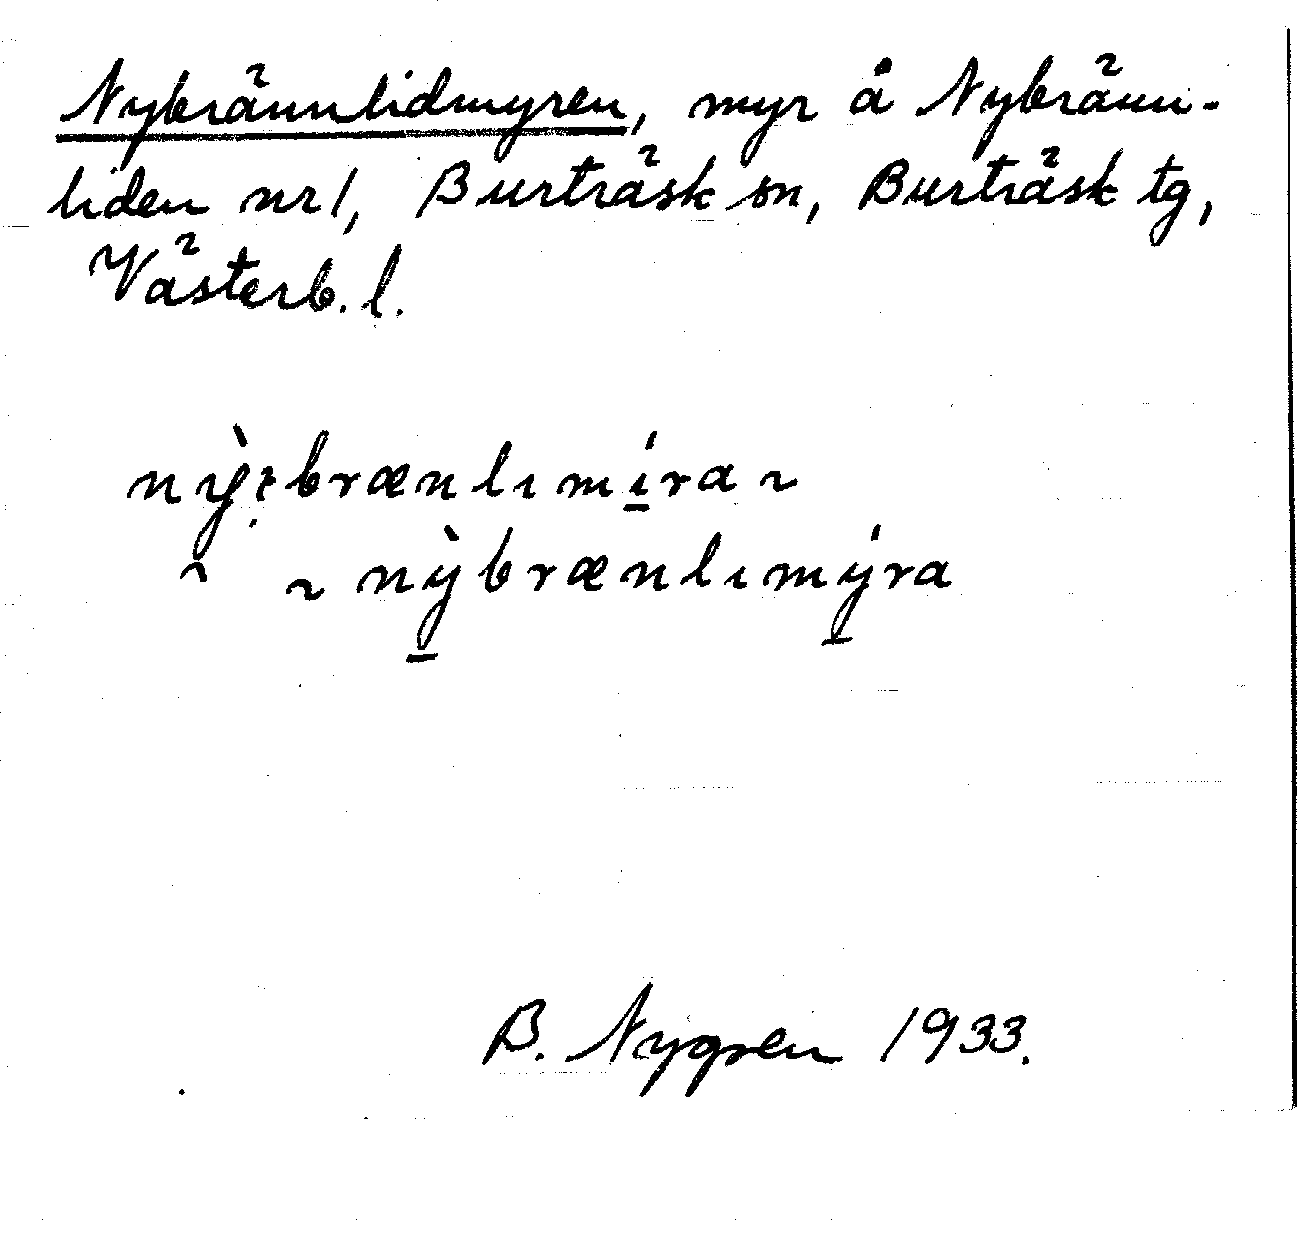 Nybrännlidmyren, myr å Nybränn-
liden nr 1, Burträsk sn, Burträsk tg,
Västerb. l.
nỳ:brænlımíra ~
~ nỳbrænlımýra
B. Nygren 1933.